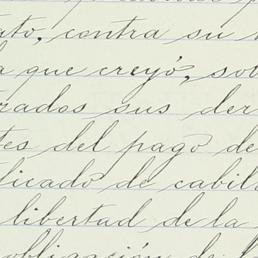 to, contra su
que creyó, so
rados sus der
tes del pago de
licado de cabil
libertad de la
obligación de l